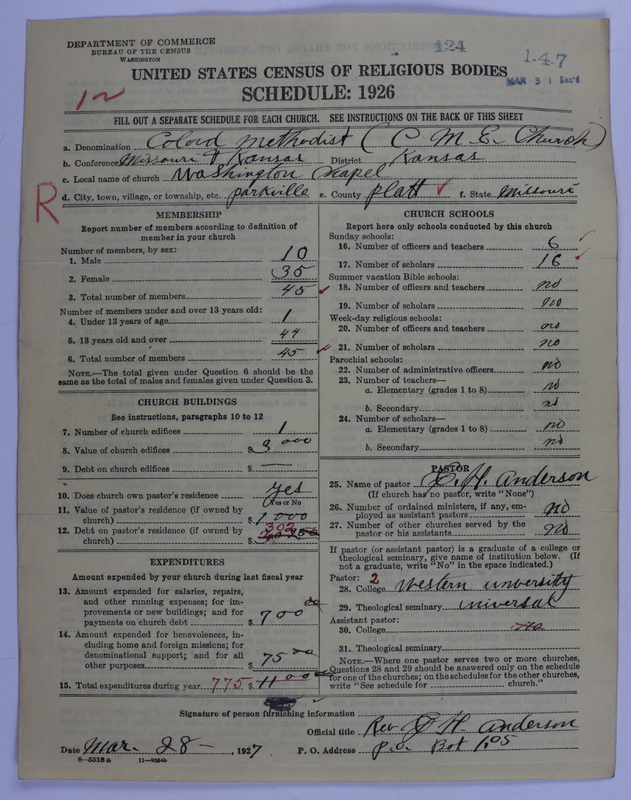 DEPARTMENT OF COMMERCE
BUREAU OF THE CENSUS
WASHINGTON
124
1-4-7
MAR 31 Rec'd
UNITED STATES CENSUS OF RELIGIOUS BODIES
SCHEDULE: 1926
12
FILL OUT A SEPARATE SCHEDULE FOR EACH CHURCH. SEE INSTRUCTIONS ON THE BACK OF THIS SHEET
a. Denomination Colord Methodist (C M E Church)
b. Conference Missouri & Kansas District Kansas
c. Local name of church Washington Chapel
R
d. City, town, village, or township, etc. parkville e. County platt f. State Missouri
MEMBERSHIP
Report number of members according to definition of member in your church
Number of members, by sex:
1. Male 10
2. Female 35
3. Total number of members 45
Number of members under and over 13 years old:
4. Under 13 years of age 1
5. 13 years old and over 44
6. Total number of members 45
NOTE.—The total given under Question 6 should be the same as the total of males and females given under Question 3.
CHURCH BUILDINGS
See instructions, paragraphs 10 to 12
7. Number of church edifices 1
8. Value of church edifices $ 3000
9. Debt on church edifices $ —
10. Does church own pastor's residence yes
(Yes or No)
11. Value of pastor's residence (if owned by church) $ 1000
12. Debt on pastor's residence (if owned by church) $ 302
EXPENDITURES
Amount expended by your church during last fiscal year
13. Amount expended for salaries, repairs, and other running expenses; for improvements or new buildings; and for payments on church debt $ 700 00
14. Amount expended for benevolences, including home and foreign missions; for denominational support; and for all other purposes 75 00
15. Total expenditures during year 775 $
CHURCH SCHOOLS
Report here only schools conducted by this church
Sunday schools:
16. Number of officers and teachers 6
17. Number of scholars 16
Summer vacation Bible schools:
18. Number of officers and teachers no
19. Number of scholars no
Week-day religious schools:
20. Number of officers and teachers no
21. Number of scholars no
Parochial schools:
22. Number of administrative officers no
23. Number of teachers—
a. Elementary (grades 1 to 8) no
b. Secondary no
24. Number of scholars—
a. Elementary (grades 1 to 8) no
b. Secondary no
PASTOR
25. Name of pastor H. Anderson
(If church has no pastor, write "None")
26. Number of ordained ministers, if any, employed as assistant pastors no
27. Number of other churches served by the pastor or his assistants no
If pastor (or assistant pastor) is a graduate of a college or theological seminary, give name of institution below. (If not a graduate, write "No" in the space indicated.)
Pastor: 2
28. College Western university
29. Theological seminary universal
Assistant pastor:
30. College no
31. Theological seminary
NOTE.—Where one pastor serves two or more churches, Questions 28 and 29 should be answered only on the schedule for one of the churches; on the schedules for the other churches, write "See schedule for church."
Signature of person furnishing information
Official title Rev H. Anderson
Date Mar. 28 — , 1927 P. O. Address p.o. Bot 105
8—5518 a 11—9064b